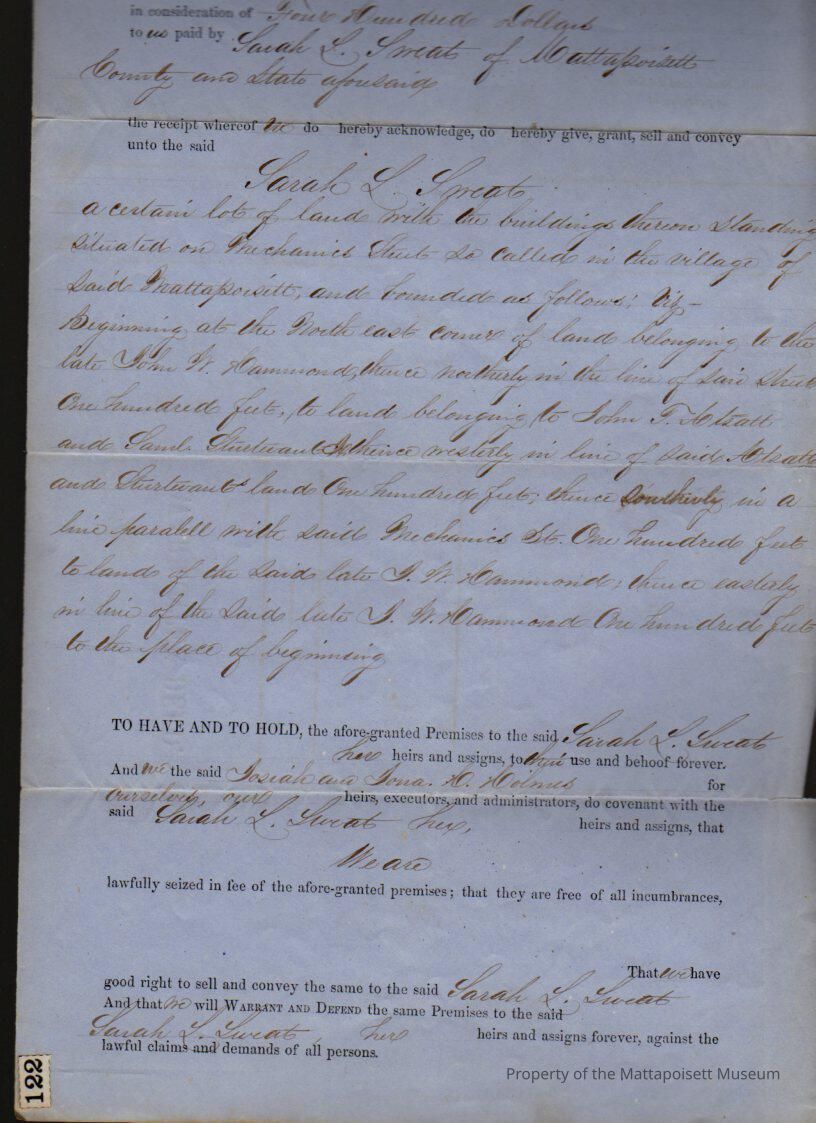 in consideration of Four Hundred Dollars
to us paid by Sarah L. Sweat of Mattapoisett
County and State aforesaid
the receipt whereof We do hereby acknowledge, do hereby give, grant, sell and convey
unto the said
Sarah L. Sweat
a certain lot of land with the buildings thereon standing
situated on Mechanics Street so called in the village of
said Mattapoisett, and bounded as follows; Viz -
Beginning at the North east corner of land belonging to the
late John W. Hammond, thence northerly in the line of said Street
One hundred feet, to land belonging to John T. Atsatt
and Saml. Sturtevant thence westerly in line of said Atsatt
and Sturtevant's land One hundred feet; thence southerly in a
line paralell with said Mechanics St. One hundred feet
to land of the said late J. W. Hammond; thence easterly
in line of the said late J. W. Hammond One hundred feet
to the place of beginning
TO HAVE AND TO HOLD, the afore-granted Premises to the said Sarah L. Sweat
her heirs and assigns, to their use and behoof forever.
And we the said Josiah and Jona. H. Holmes for
ourselves, our heirs, executors, and administrators, do covenant with the
said Sarah L. Sweat her, heirs and assigns, that
We are
lawfully seized in fee of the afore-granted premises; that they are free of all incumbrances,
That we have
good right to sell and convey the same to the said Sarah L. Sweat
And that we will WARRANT AND DEFEND the same Premises to the said
Sarah L. Sweat, her heirs and assigns forever, against the
lawful claims and demands of all persons.
122
Property of the Mattapoisett Museum